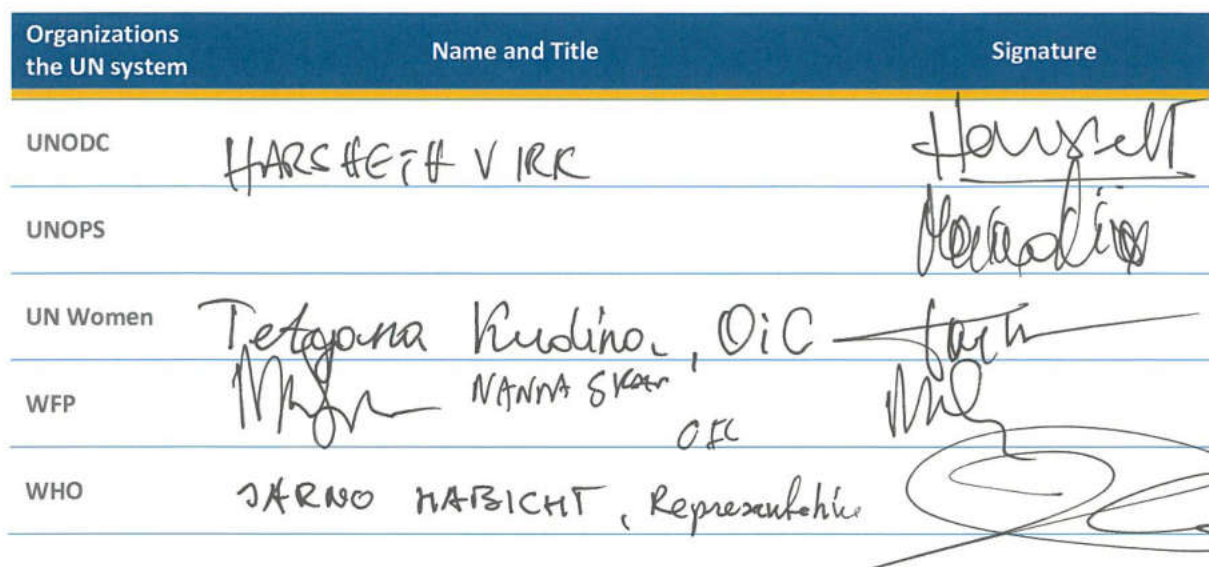 Organizations
the UN system Name and Title Signature
UNODC HARSHETH VIRK
UNOPS
UN Women Tetyana Kudina, OiC
WFP NANNA SKAU
OIC
WHO JARNO HABICHT, Representative